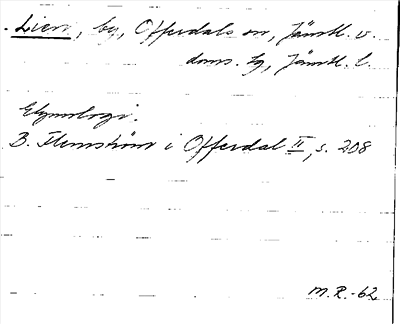 Lien, by, Offerdals sn, Jämtl. v.
doms. hg, Jämtl. l.
Etymologi.
B. Flemström i Offerdal II, s. 208
M.R.-62